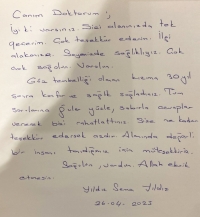 Canım Doktorum;
İyi ki varsınız. Sizi alanınızda tek
geçerim. Çok teşekkür ederim. İlgi
alakanıza. Sayenizde sağlıklıyız. Çok
çok sağolun. Varolun.
Göz tembelliği olan kızıma 30 yıl
sonra konfor ve sağlık sağladınız. Tüm
sorularıma güler yüzle, sabırla cevapları
vererek bizi rahatlattınız. Size ne kadar
teşekkür edersek azdır. Alanında değerli
bir insanı tanıdığımız için müteşekkiriz.
Sağolun, varolun. Allah eksik
etmesin.
Yıldız Sema Yıldız
26.04.2023